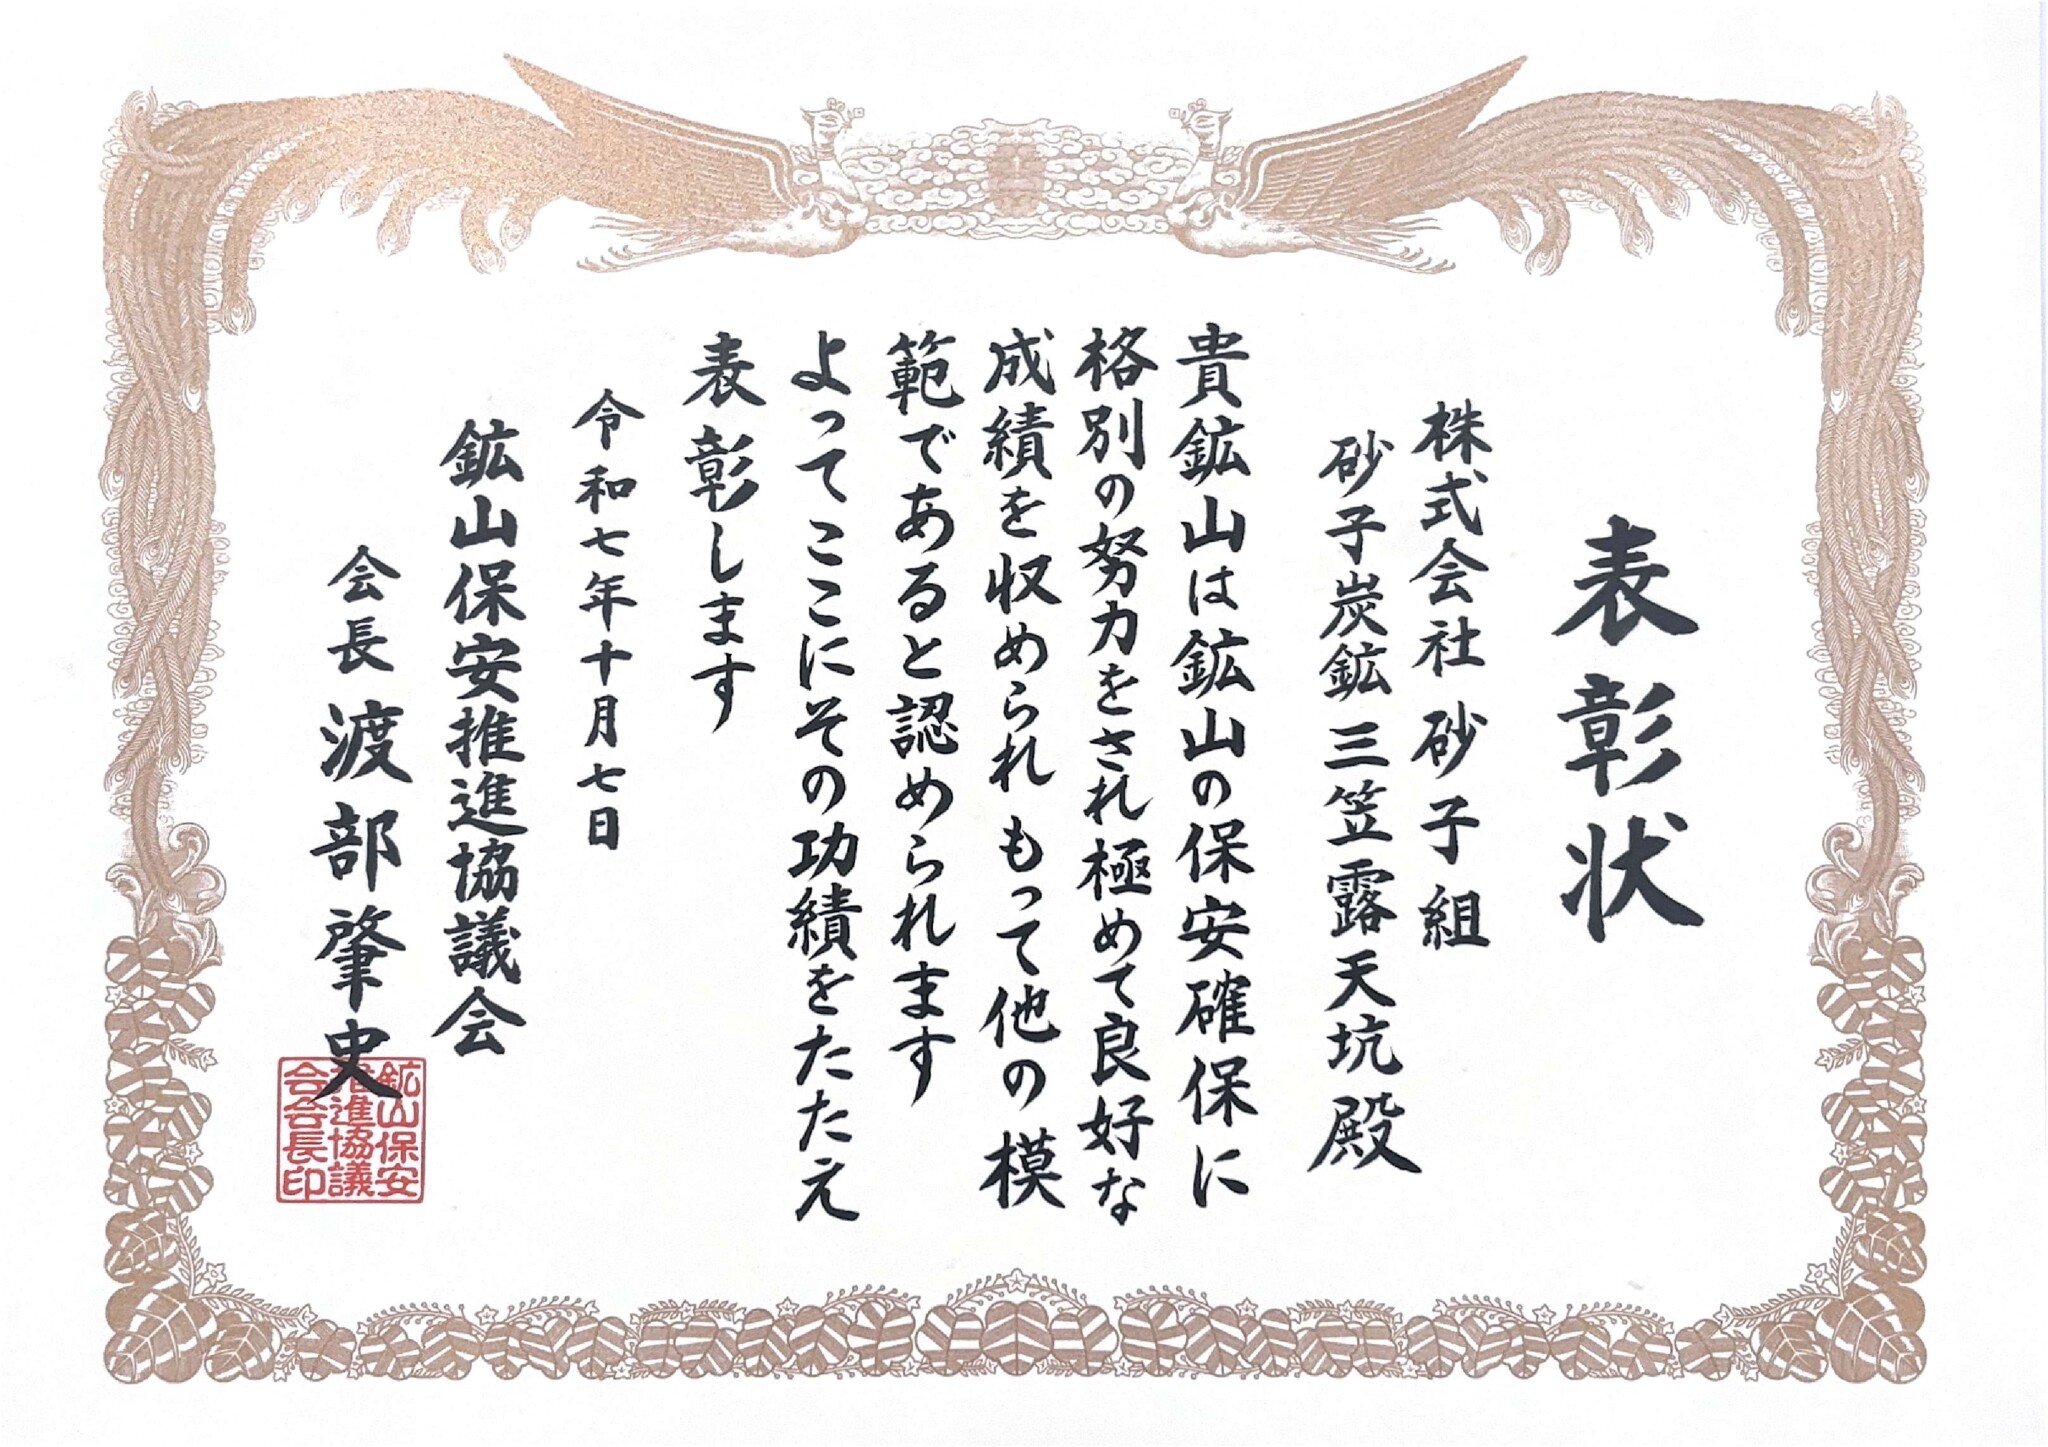 表彰状
株式会社 砂子組
砂子炭鉱 三笠露天坑殿
貴鉱山は鉱山の保安確保に
格別の努力をされ極めて良好な
成績を収められ もって他の模
範であると認められます
よってここにその功績をたたえ
表彰します
令和七年十月七日
鉱山保安推進協議会
会長 渡部肇史
鉱山保安
推進協議
会会長印